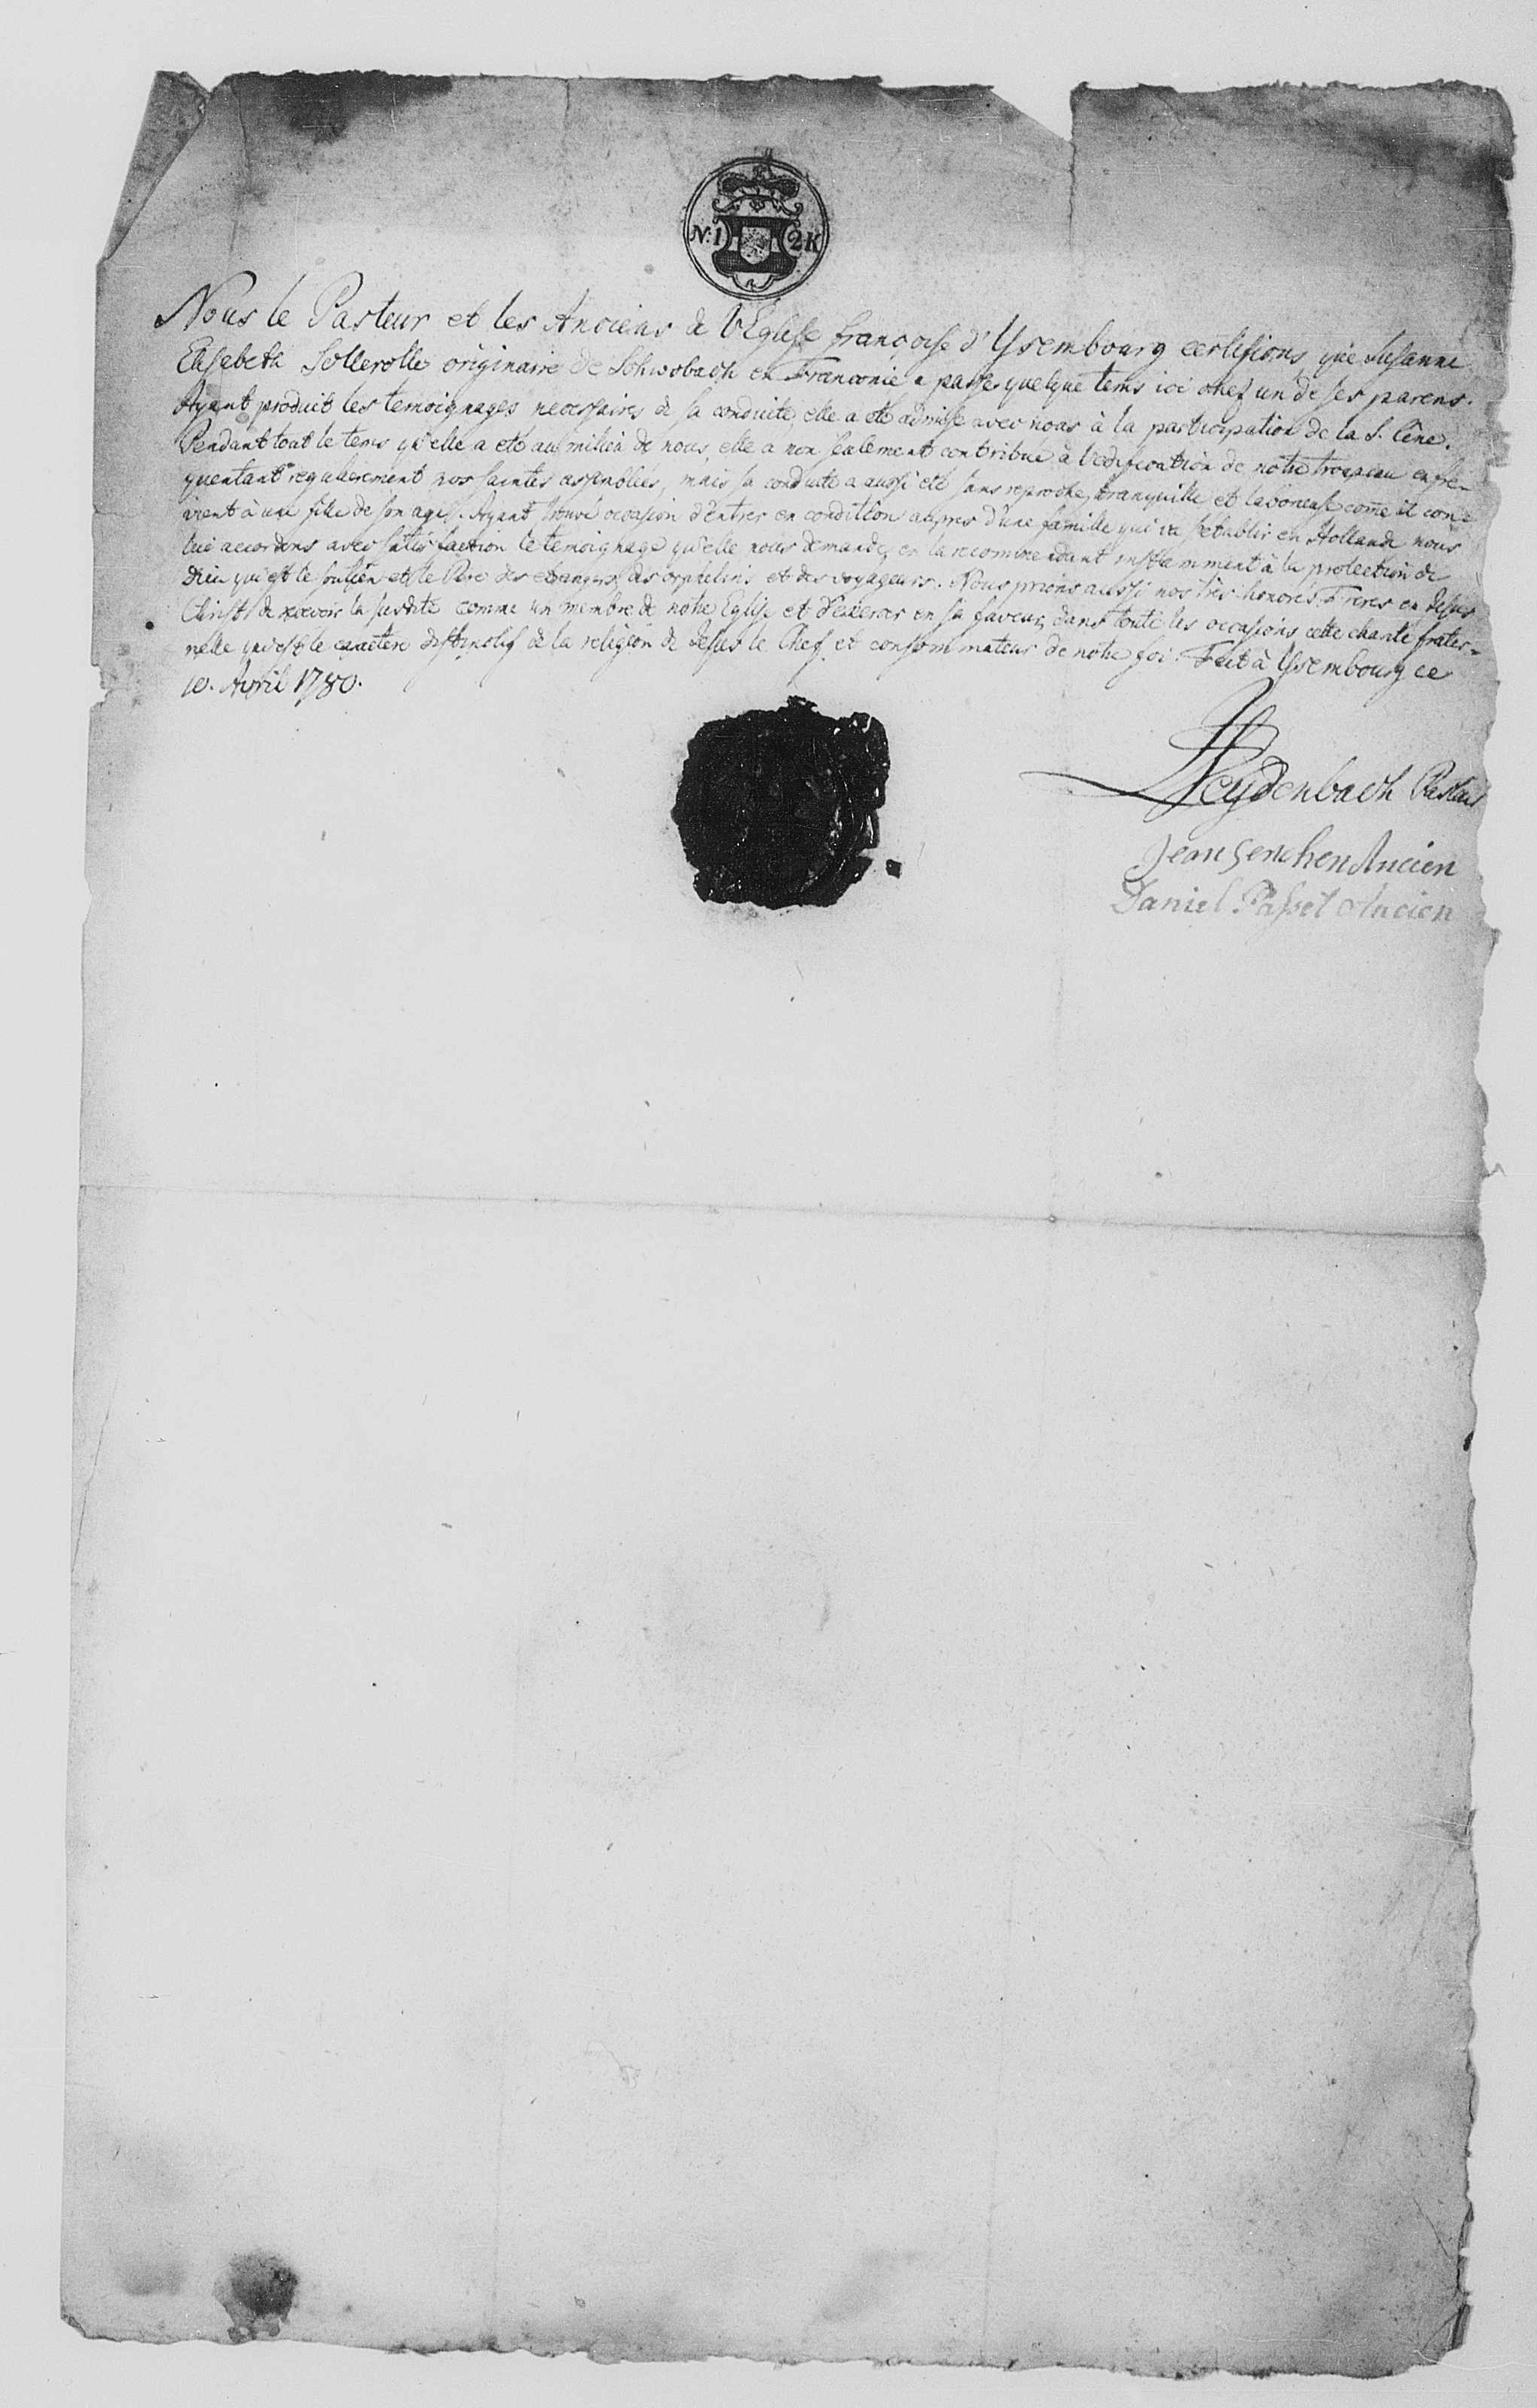 N.1 2K
Nous le Pasteur et les Anciens de l'Eglise françoise d'Ysembourg certifions que Susanne
Elisabeth originaire de Schwobach en Franconie a passé quelque tems ici chez un de ses parens.
Ayant produit les temoignages necessaires de sa conduite, elle a eté admise avec nous à la participation de la S. Cêne.
Pendant tout le tems qu'elle a eté au milieu de nous, elle a non seulement contribué à l'edification de notre troupeau en fre-
quentant regulierement nos saintes assemblées, mais sa conduite a aussi eté sans reproche, tranquille et laborieuse come il con-
vient à une fille de son age. Ayant trouvé occasion d'entrer en condition aupres d'une famille qui va s'etablir en Hollande nous
lui accordons avec satisfaction le temoignage qu'elle nous demande, en la recommendant instamment à la protection de
Dieu qui est le soutien et le Pere des etrangers, des orphelins et des voyageurs. Nous prions aussi nos très-honorés Freres en Jesus
Christ de recevoir la susdite comme un membre de notre Eglise et d'exercer en sa faveur, dans toute les occasions cette charité frater-
nelle qui est le caractere distinctif de la religion de Jesus le Chef et consommateur de notre foi. Fait à Ysembourg ce
10. Avril 1780.
Pasteur
Jean Ancien
Daniel Passet Ancien